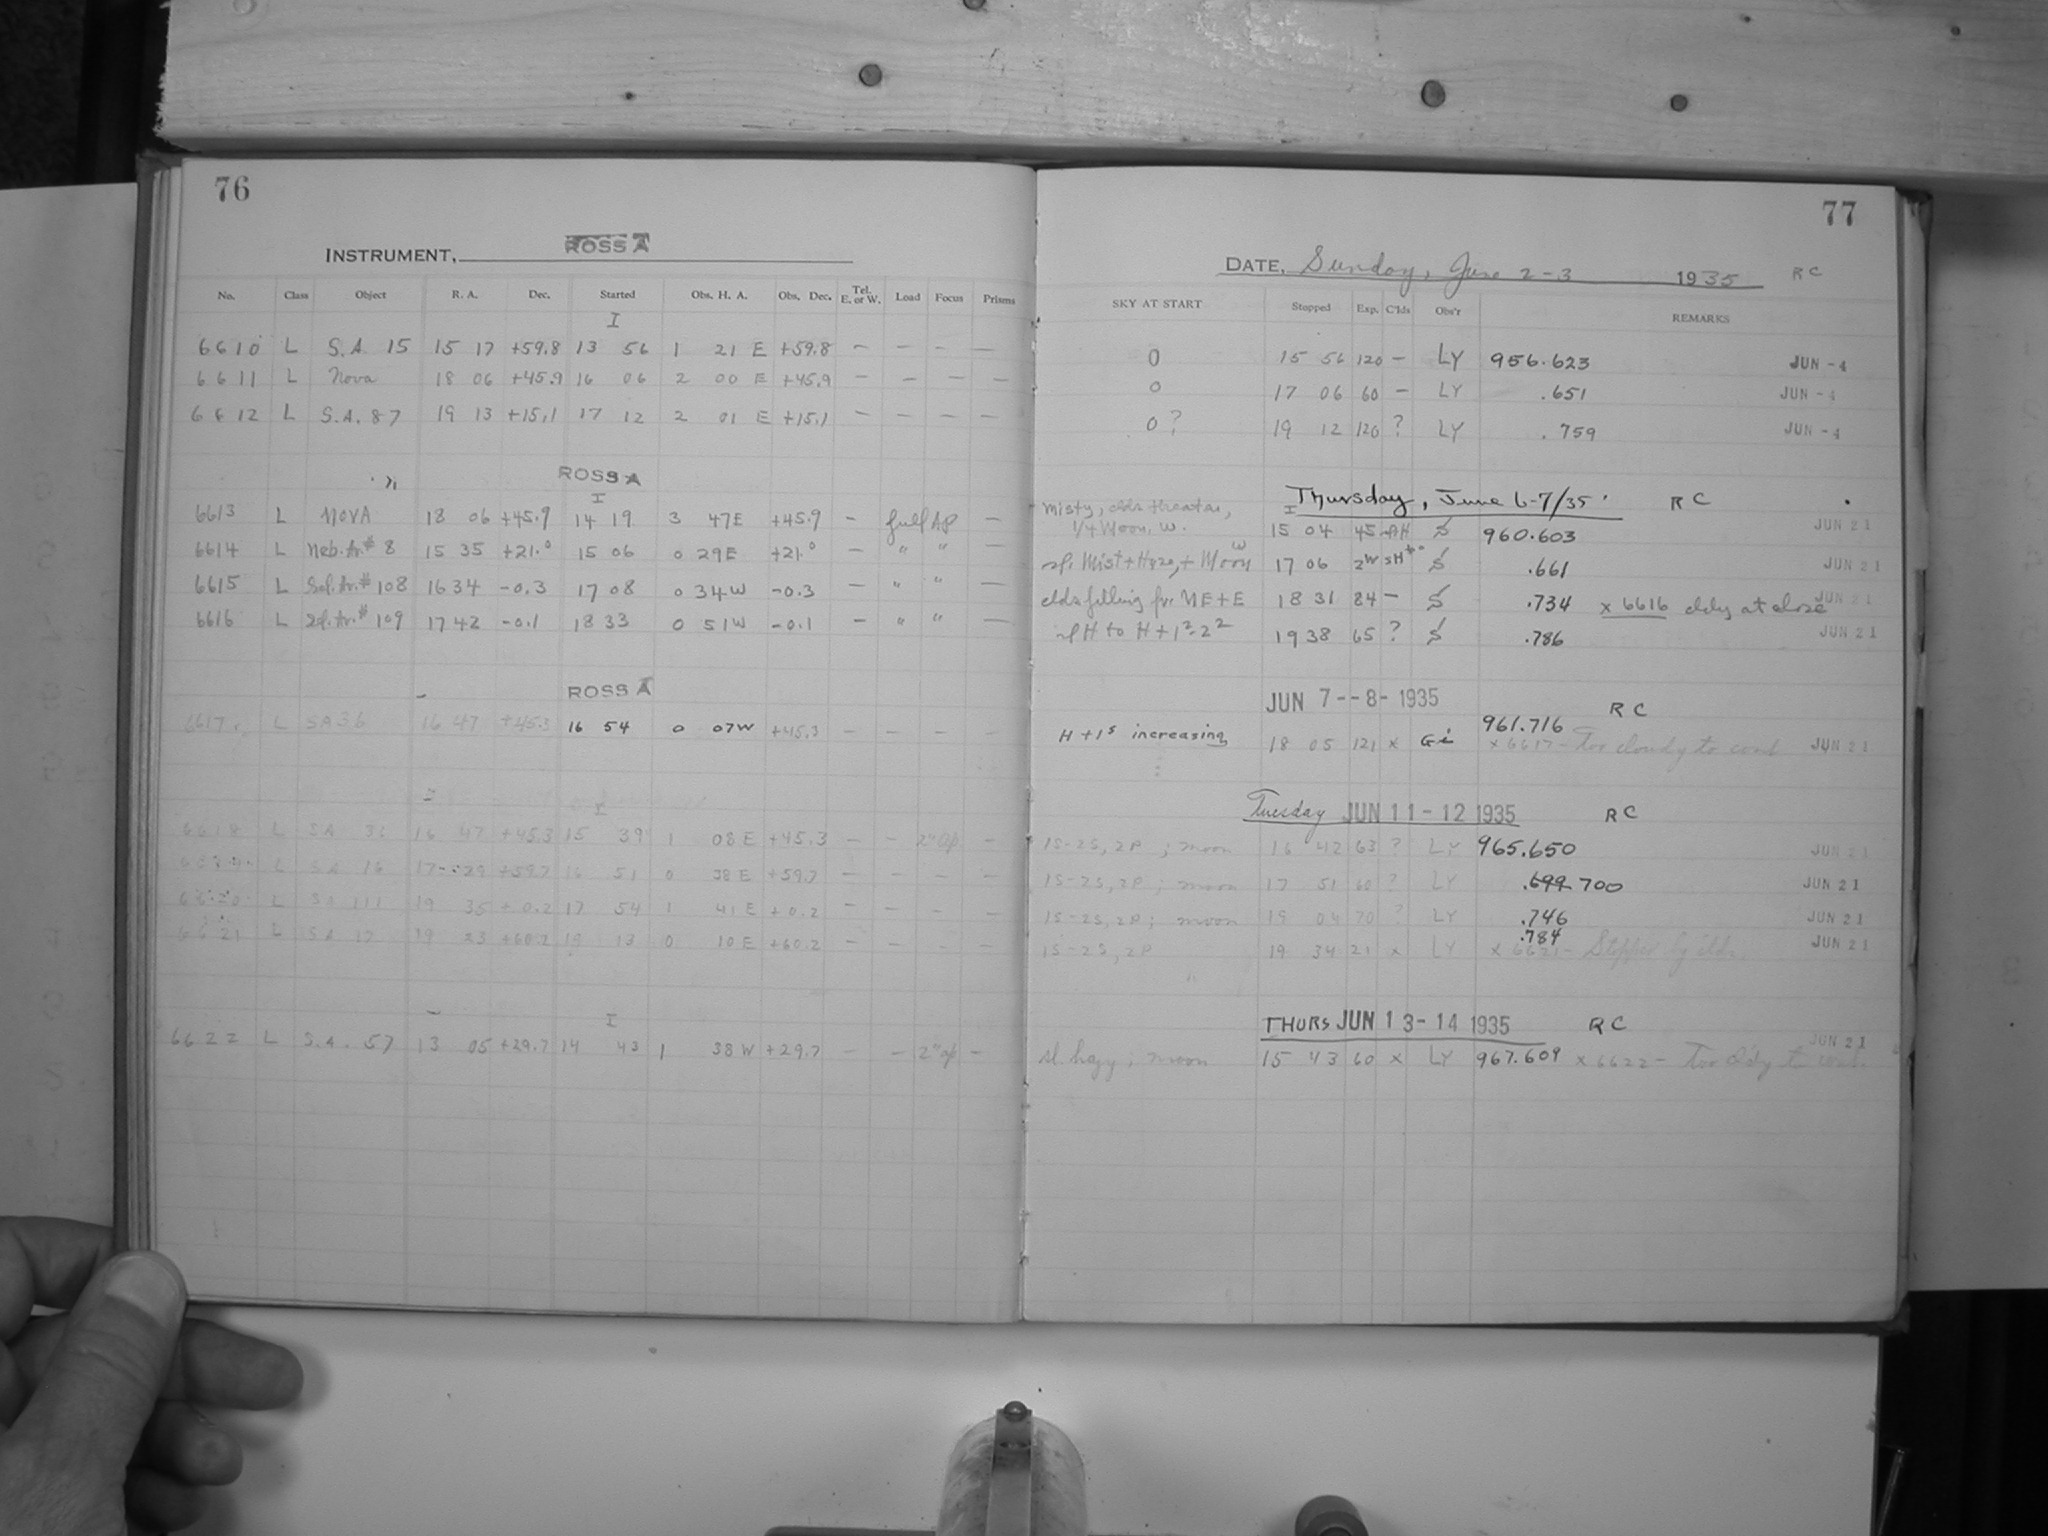 76
INSTRUMENT, ROSS A
No. Class Object R. A. Dec. Started Obs. H. A. Obs. Dec. Tel. E. or W. Load Focus Prisms
I
6610 L S.A. 15 15 17 +59.8 13 56 1 21 E +59.8 — — — —
6611 L Nova 18 06 +45.9 16 06 2 00 E +45.9 — — — —
6612 L S.A. 87 19 13 +15.1 17 12 2 01 E +15.1 — — — —
ROSS A
I
6613 L NOVA 18 06 +45.9 14 19 3 47E +45.9 — full AP —
6614 L Neb. Ar.# 8 15 35 +21.0 15 06 0 29E +21.0 — " " —
6615 L Sel. Ar.# 108 16 34 -0.3 17 08 0 34W -0.3 — " " —
6616 L Sel. Ar.# 109 17 42 -0.1 18 33 0 51W -0.1 — " " —
ROSS A
6617 L SA 36 16 47 +45.3 16 54 0 07W +45.3 — — — —
I
6618 L SA 36 16 47 +45.3 15 39 1 08 E +45.3 — — 2" ap —
L SA 16 17 29 +59.7 16 51 0 38 E +59.7 — — — —
6620 L SA 111 19 35 +0.2 17 54 1 41 E +0.2 — — — —
6621 L SA 17 19 23 +60.2 19 13 0 10 E +60.2 — — — —
I
6622 L S.A. 57 13 05 +29.7 14 43 1 38 W +29.7 — — 2" ap —
77
DATE, Sunday, June 2-3 1935 RC
SKY AT START Stopped Exp. C'lds Obs'r REMARKS
0 15 56 120 — LY 956.623 JUN -4
0 17 06 60 — LY .651 JUN -4
0? 19 12 120 ? LY .759 JUN -4
Thursday, June 6-7/35 RC
Misty, clds threaten,
1/4 Moon, W. 15 04 45 960.603 JUN 21
sl. Mist + Haze, + Moon W 17 06 .661 JUN 21
clds filling fr. NE+E 18 31 84 — .734 x 6616 cldy at close JUN 21
sl H to H + 1²-2² 19 38 65 ? .786 JUN 21
JUN 7--8- 1935 RC
H + 1s increasing 18 05 121 x Gi 961.716
x 6617 - Too cloudy to cont JUN 21
Tuesday JUN 11-12 1935 RC
1S-2S, 2P ; moon 16 42 63 ? LY 965.650 JUN 21
1S-2S, 2P ; moon 17 51 60 ? LY .699 700 JUN 21
1S-2S, 2P ; moon 19 04 70 ? LY .746 JUN 21
1S-2S, 2P 19 34 21 x LY .784
x 6621 - Stopped by clds. JUN 21
THURS JUN 13-14 1935 RC
sl. hazy ; moon 15 43 60 x LY 967.609 x 6622 - Too cldy to cont. JUN 21